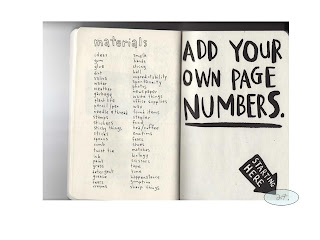 materials
ideas
gum
glue
dirt
saliva
water
weather
garbage
plant life
pencil/pen
needle & thread
stamps
stickers
sticky things
sticks
spoons
comb
twist tie
ink
paint
grass
detergent
grease
tears
crayons
smells
hands
string
ball
unpredictability
spontaneity
photos
newspaper
white things
office supplies
wax
found items
stapler
food
tea/coffee
emotions
fears
shoes
matches
biology
scissors
tape
time
happenstance
gumption
sharp things
ADD YOUR
OWN PAGE
NUMBERS.
STARTING
HERE